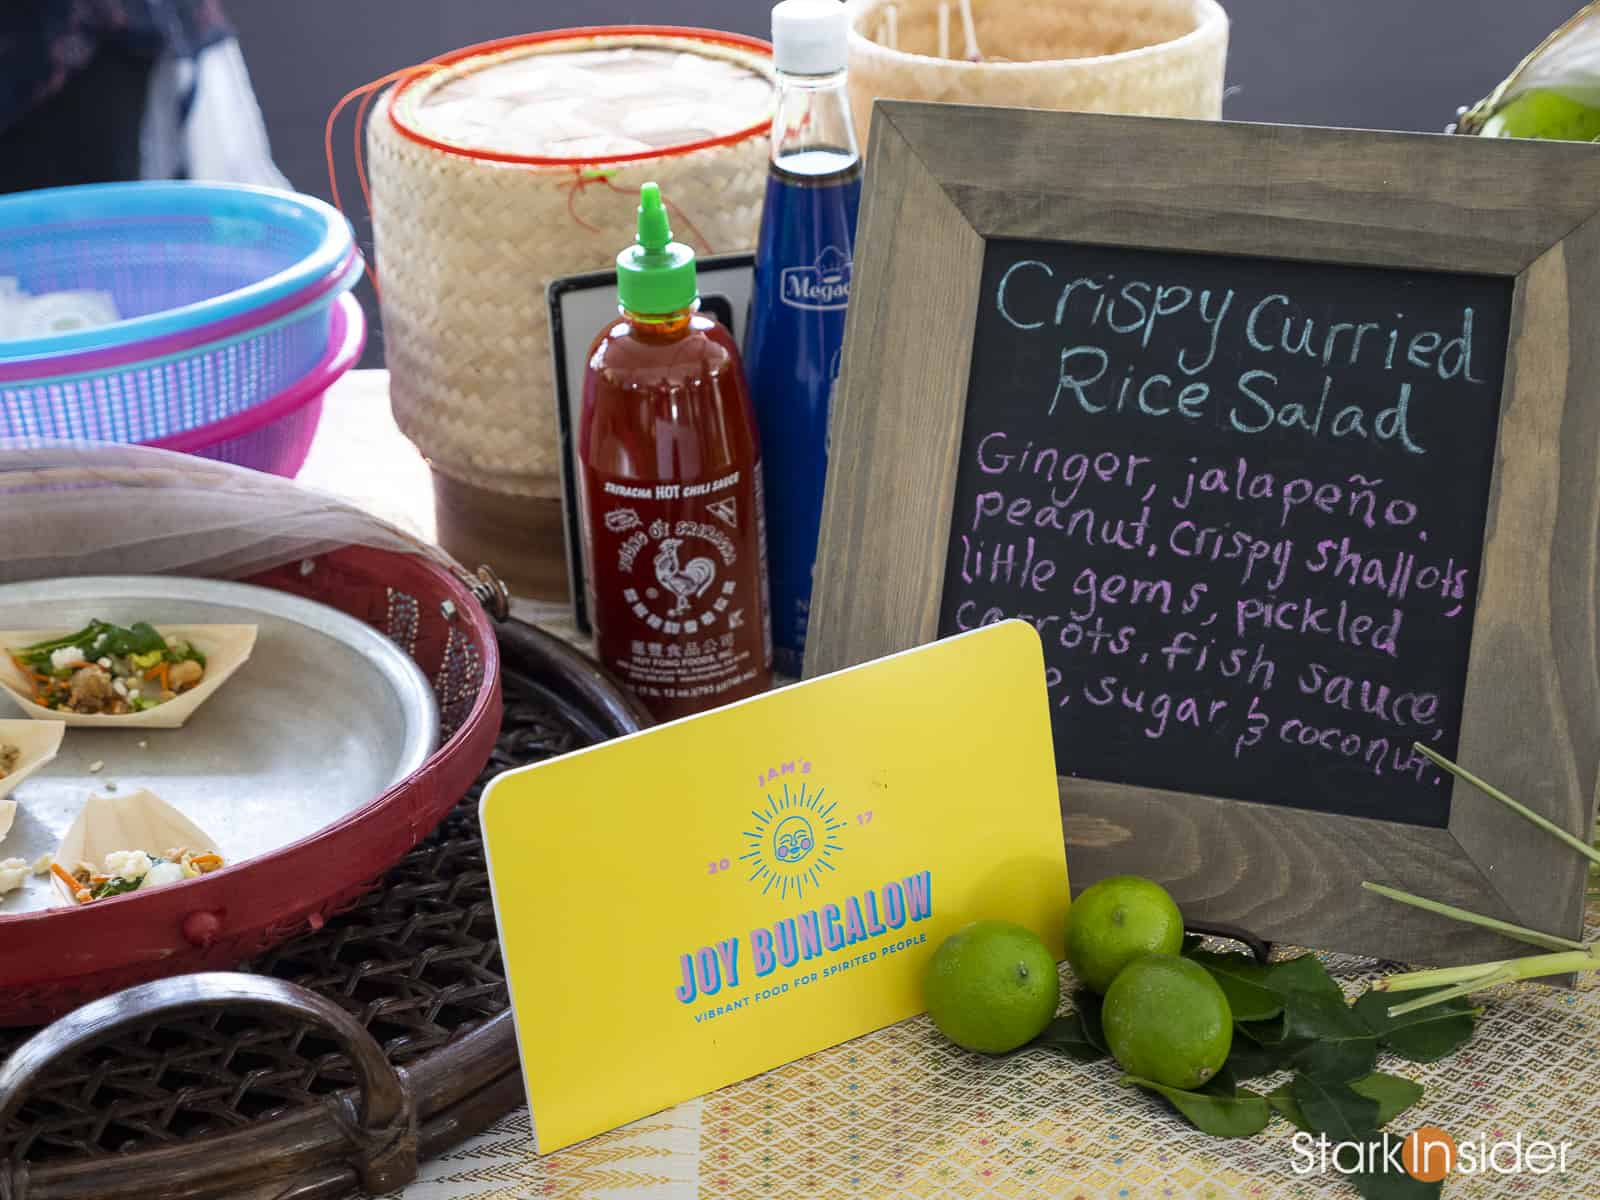 Crispy Curried
Rice Salad
Ginger, jalapeño.
peanut. Crispy shallots,
little gems, pickled
carrots. fish sauce,
sugar & coconut.
SRIRACHA HOT CHILI SAUCE
TƯƠNG ỚT SRIRACHA
滙豐食品公司
HUY FONG FOODS, INC.
JAM'S
2017
JOY BUNGALOW
VIBRANT FOOD FOR SPIRITED PEOPLE
StarkInsider